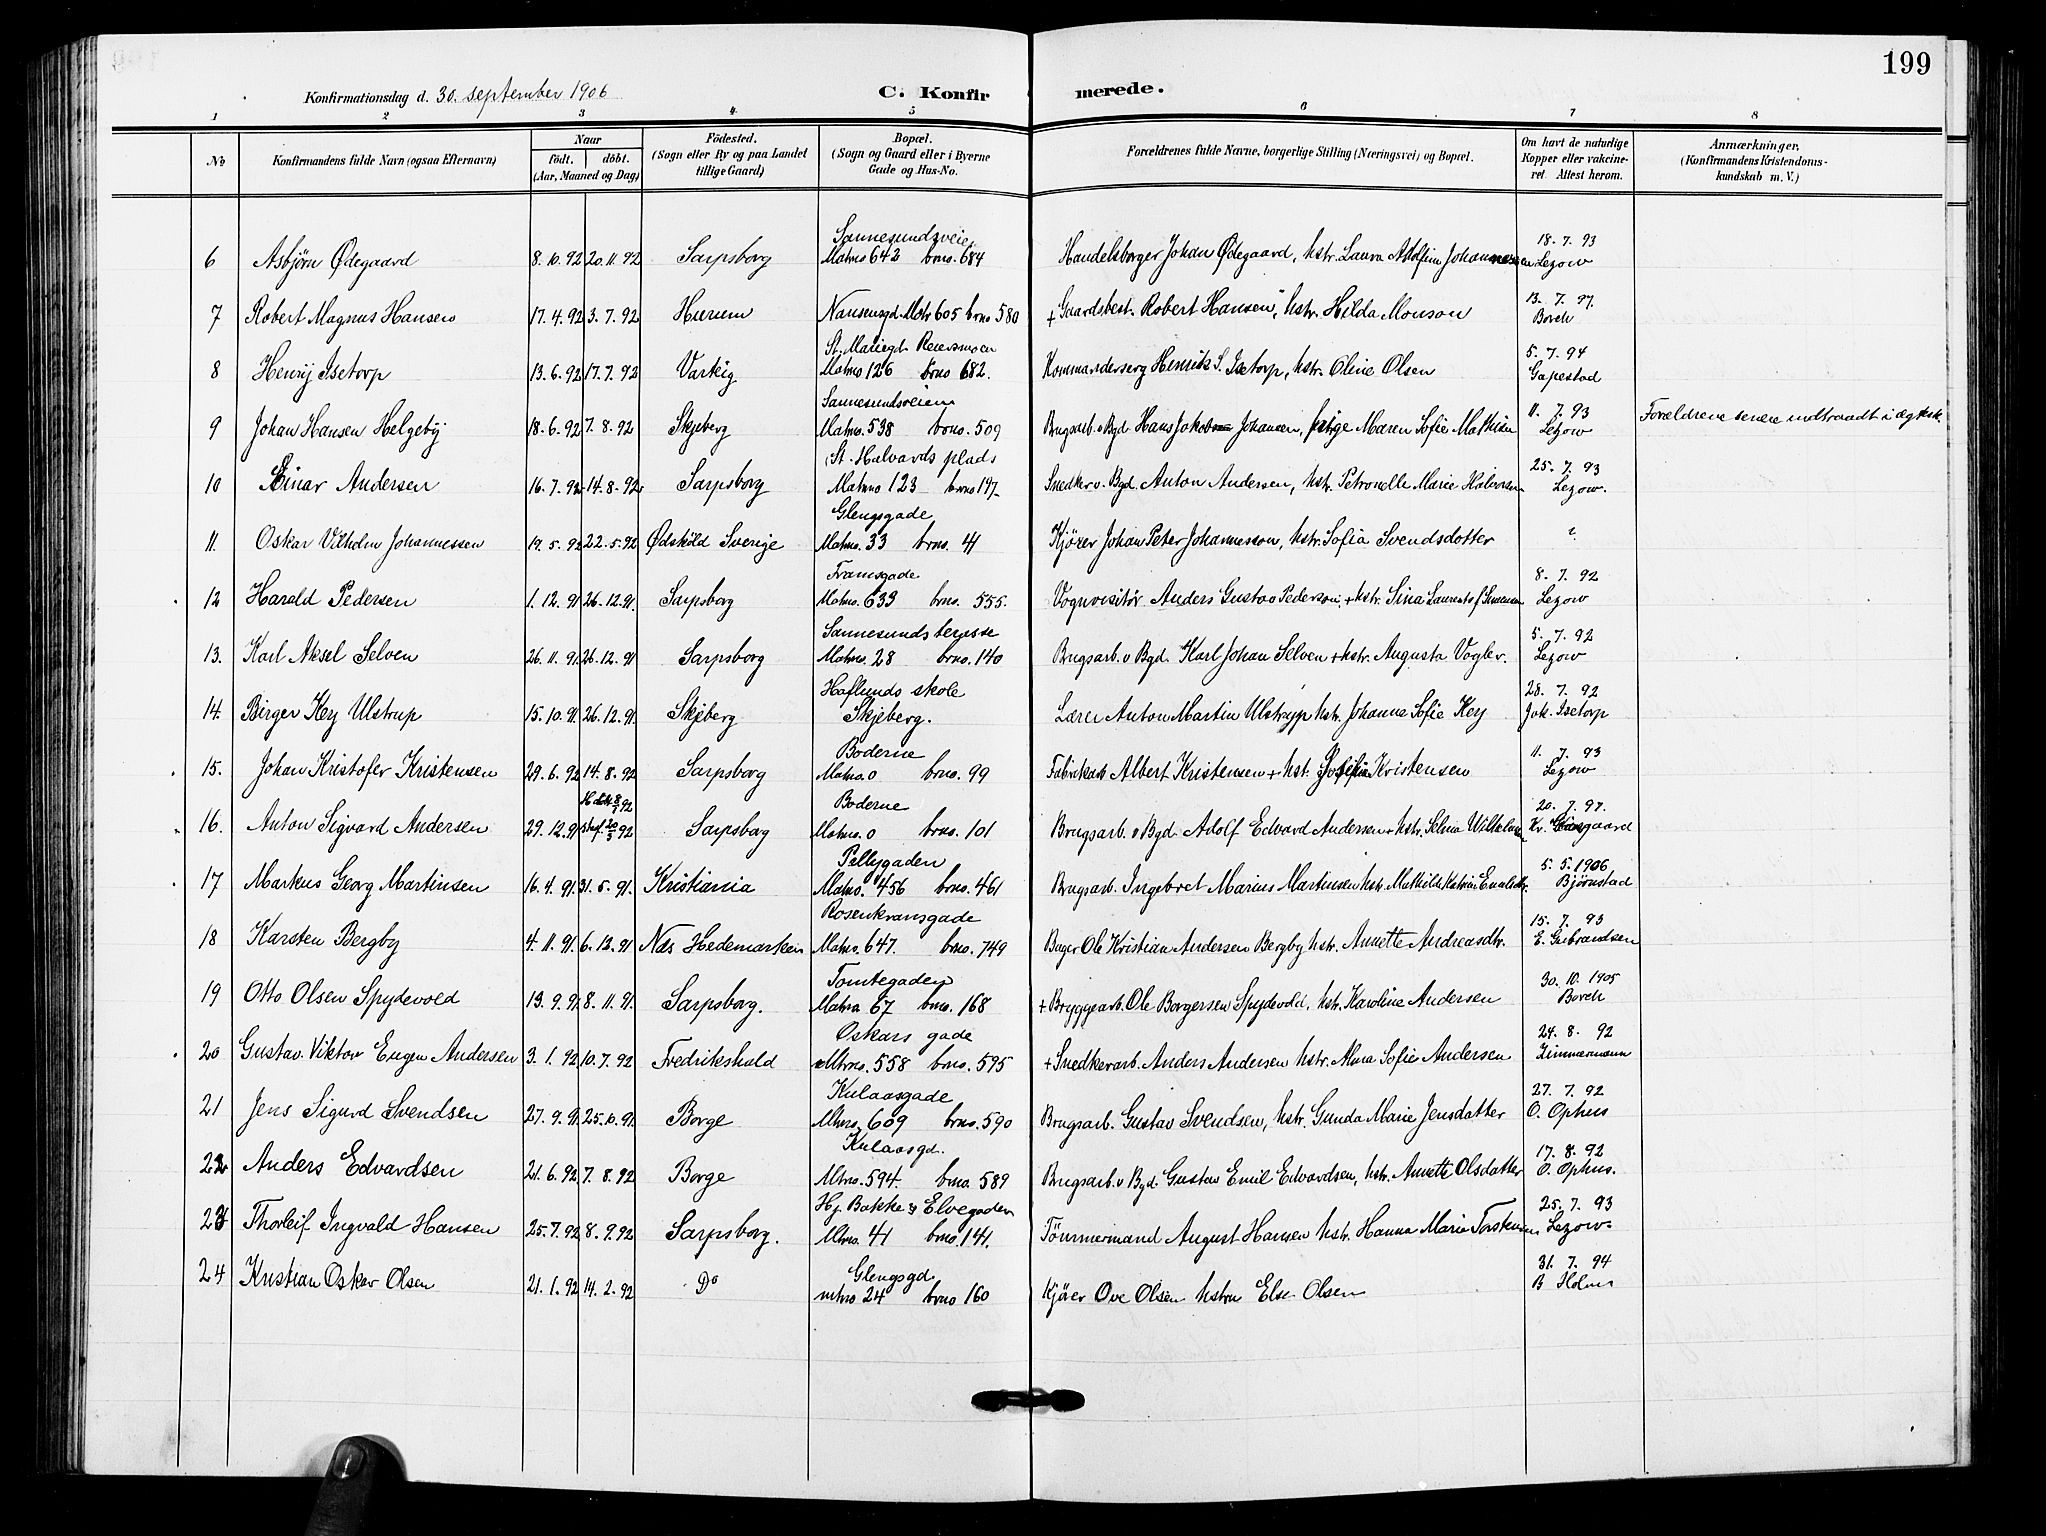 199
Konfirmationsdag d. 30. september 1906
C. Konfir merede.
1 2 3 4 5 6 7 8
No
Konfirmandens fulde Navn (ogsaa Efternavn)
Naar
födt. döbt.
(Aar, Maaned og Dag)
Födested.
(Sogn eller By og paa Landet
tillige Gaard)
Bopæl.
(Sogn og Gaard eller i Byerne
Gade og Hus-No.
Forældrenes fulde Navne, borgerlige Stilling (Næringsvei) og Bopæl.
Om havt de naturlige
Kopper eller vakcine-
ret. Attest herom.
Anmærkninger.
(Konfirmandens Kristendoms-
kundskab m. V.)
Sannesundsveien 18. 7. 93
6 Asbjörn Ødegaard 8. 10. 92 20. 11. 92 Sarpsborg Matrno 642 brno. 684 Handelsborger Johan Ødegaard, hstr. Laura Johannessen Lezow
13. 7. 97.
7 Robert Magnus Hansen 17. 4. 92 3. 7. 92 Hurum Nansensgd. Matr 605 brno 580 + Gaardsbest. Robert Hansen, hstr. Hilda Monson Borch
St. Mariegd. Reiersmoen 5. 7. 94
8 Henrij Isetorp 13. 6. 92 17. 7. 92 Varteig Matrno 126 brno 682. Kommanderserg Henrik S. Isetorp, hstr. Oline Olsen Gapestad
Sannesundsveien 11. 7. 93
9 Johan Hansen Helgeby 18. 6. 92 7. 8. 92 Skjeberg Matrno. 538 brno. 509 Brugsarb. v Bgd. Hans Johansen, pige Maren Sofie Mathisen Lezow Forældrene senere indtraadt i ægtesk.
St. Halvards plads 25. 7. 93
10 Einar Andersen 16. 7. 92 14. 8. 92 Sarpsborg Matrno 123 brno 197 Snedker v. Bgd. Anton Andersen, hstr. Petronelle Marie Halvorsen Lezow.
Glengsgade
11. Oskar Vilhelm Johannessen 19. 5. 92 22. 5. 92 Ødskøld Sverige Matrno. 33 brno. 41 Kjörer Johan Peter Johannesson, hstr. Sofia Svendsdotter ?
Framsgade 8. 7. 92
12 Harald Pedersen 1. 12. 91 26. 12. 91. Sarpsborg Matrno. 633 brno. 555. Vognvisitör Anders Gustav Pederson, + hstr. Sina Lezow
Sannesunds bergene 5. 7. 92
13. Karl Aksel Selven 26. 11. 91. 26. 12. 91 Sarpsborg Matrno. 28 brno. 140 Brugsarb. v Bgd. Karl Johan Selven + hstr. Augusta Vogler. Lezow
Haflunds skole 28. 7. 92
14. Birger Key Ulstrup 15. 10. 91. 26. 12. 91. Skjeberg Skjeberg. Lærer Anton Martin Ulstrup hstr. Johanne Sofie Key Joh. Isetorp
Boderne 11. 7. 93
15. Johan Kristofer Kristensen 29. 6. 92 14. 8. 92 Sarpsborg Matrno. 0 brno. 99 Fabrikarb Albert Kristensen + hst. Josefine Kristensen Lezow
Boderne 20. 7. 97.
16. Anton Sigvard Andersen 29. 12. 91 Sarpsborg Matrno. 0 brno. 101 Brugsarb. v Bgd. Adolf Edvard Andersen + hstr. Selma Kr.
Pellygaden 5. 5. 1906
17 Markus Georg Martinsen 16. 4. 91. 31. 5. 91. Kristiania Matrno. 456 brno. 461 Brugsarb. Ingebret Marius Martinsen hstr. Mathilde Bjørnstad
Rosenkransgade 15. 7. 93
18 Karsten Bergby 4. 11. 91. 6. 12. 91 Næs Hedemarken Matrno. 647. brno. 749 Bager Ole Kristian Andersen Bergby hstr. Annette Andreasdtr. E. Gubrandsen
Tomtegaden 30. 10. 1905
19 Otto Olsen Spydevold 13. 9. 91 8. 11. 91. Sarpsborg. Matrno 67 brno. 168 + Bryggearb. Ole Borgersen Spydevold, hstr. Karoline Andersen Borch
Oskars gade 24. 8. 92
20 Gustav Viktor Eugen Andersen 3. 1. 92 10. 7. 92 Fredrikshald Mtrno. 558 brno. 595 + Snedkerarb. Anders Andersen hstr. Alma Sofie Andersen Zimmermann
Kulaasgade 27. 7. 92
21 Jens Sigurd Svendsen 27. 9. 91 25. 10. 91. Borge Mtrno. 609 brno. 590 Brugsarb. Gustav Svendsen, hstr. Gunda Marie Jensdatter O. Ophus
Kulaasgd. 17. 8. 92
22 Anders Edvardsen 21. 6. 92 7. 8. 92 Borge Mtrno. 594. brno. 589 Brugsarb. v Bgd. Gustav Emil Edvardsen, hstr. Annette Olsdatter O. Ophus.
Hj Bakke & Elvegaden 25. 7. 93
23 Thorleif Ingvald Hansen 25. 7. 92 8. 9. 92 Sarpsborg. Mtrno. 41 brno. 141. Tömmermand August Hansen hstr. Hanna Marie Torstensen Lezow
Glengsgd. 31. 7. 94
24 Kristian Oskar Olsen 21. 1. 92 14. 2. 92 Do mtrno 24 brno 160 Kjörer Ove Olsen hstru Else Olsen B Holm